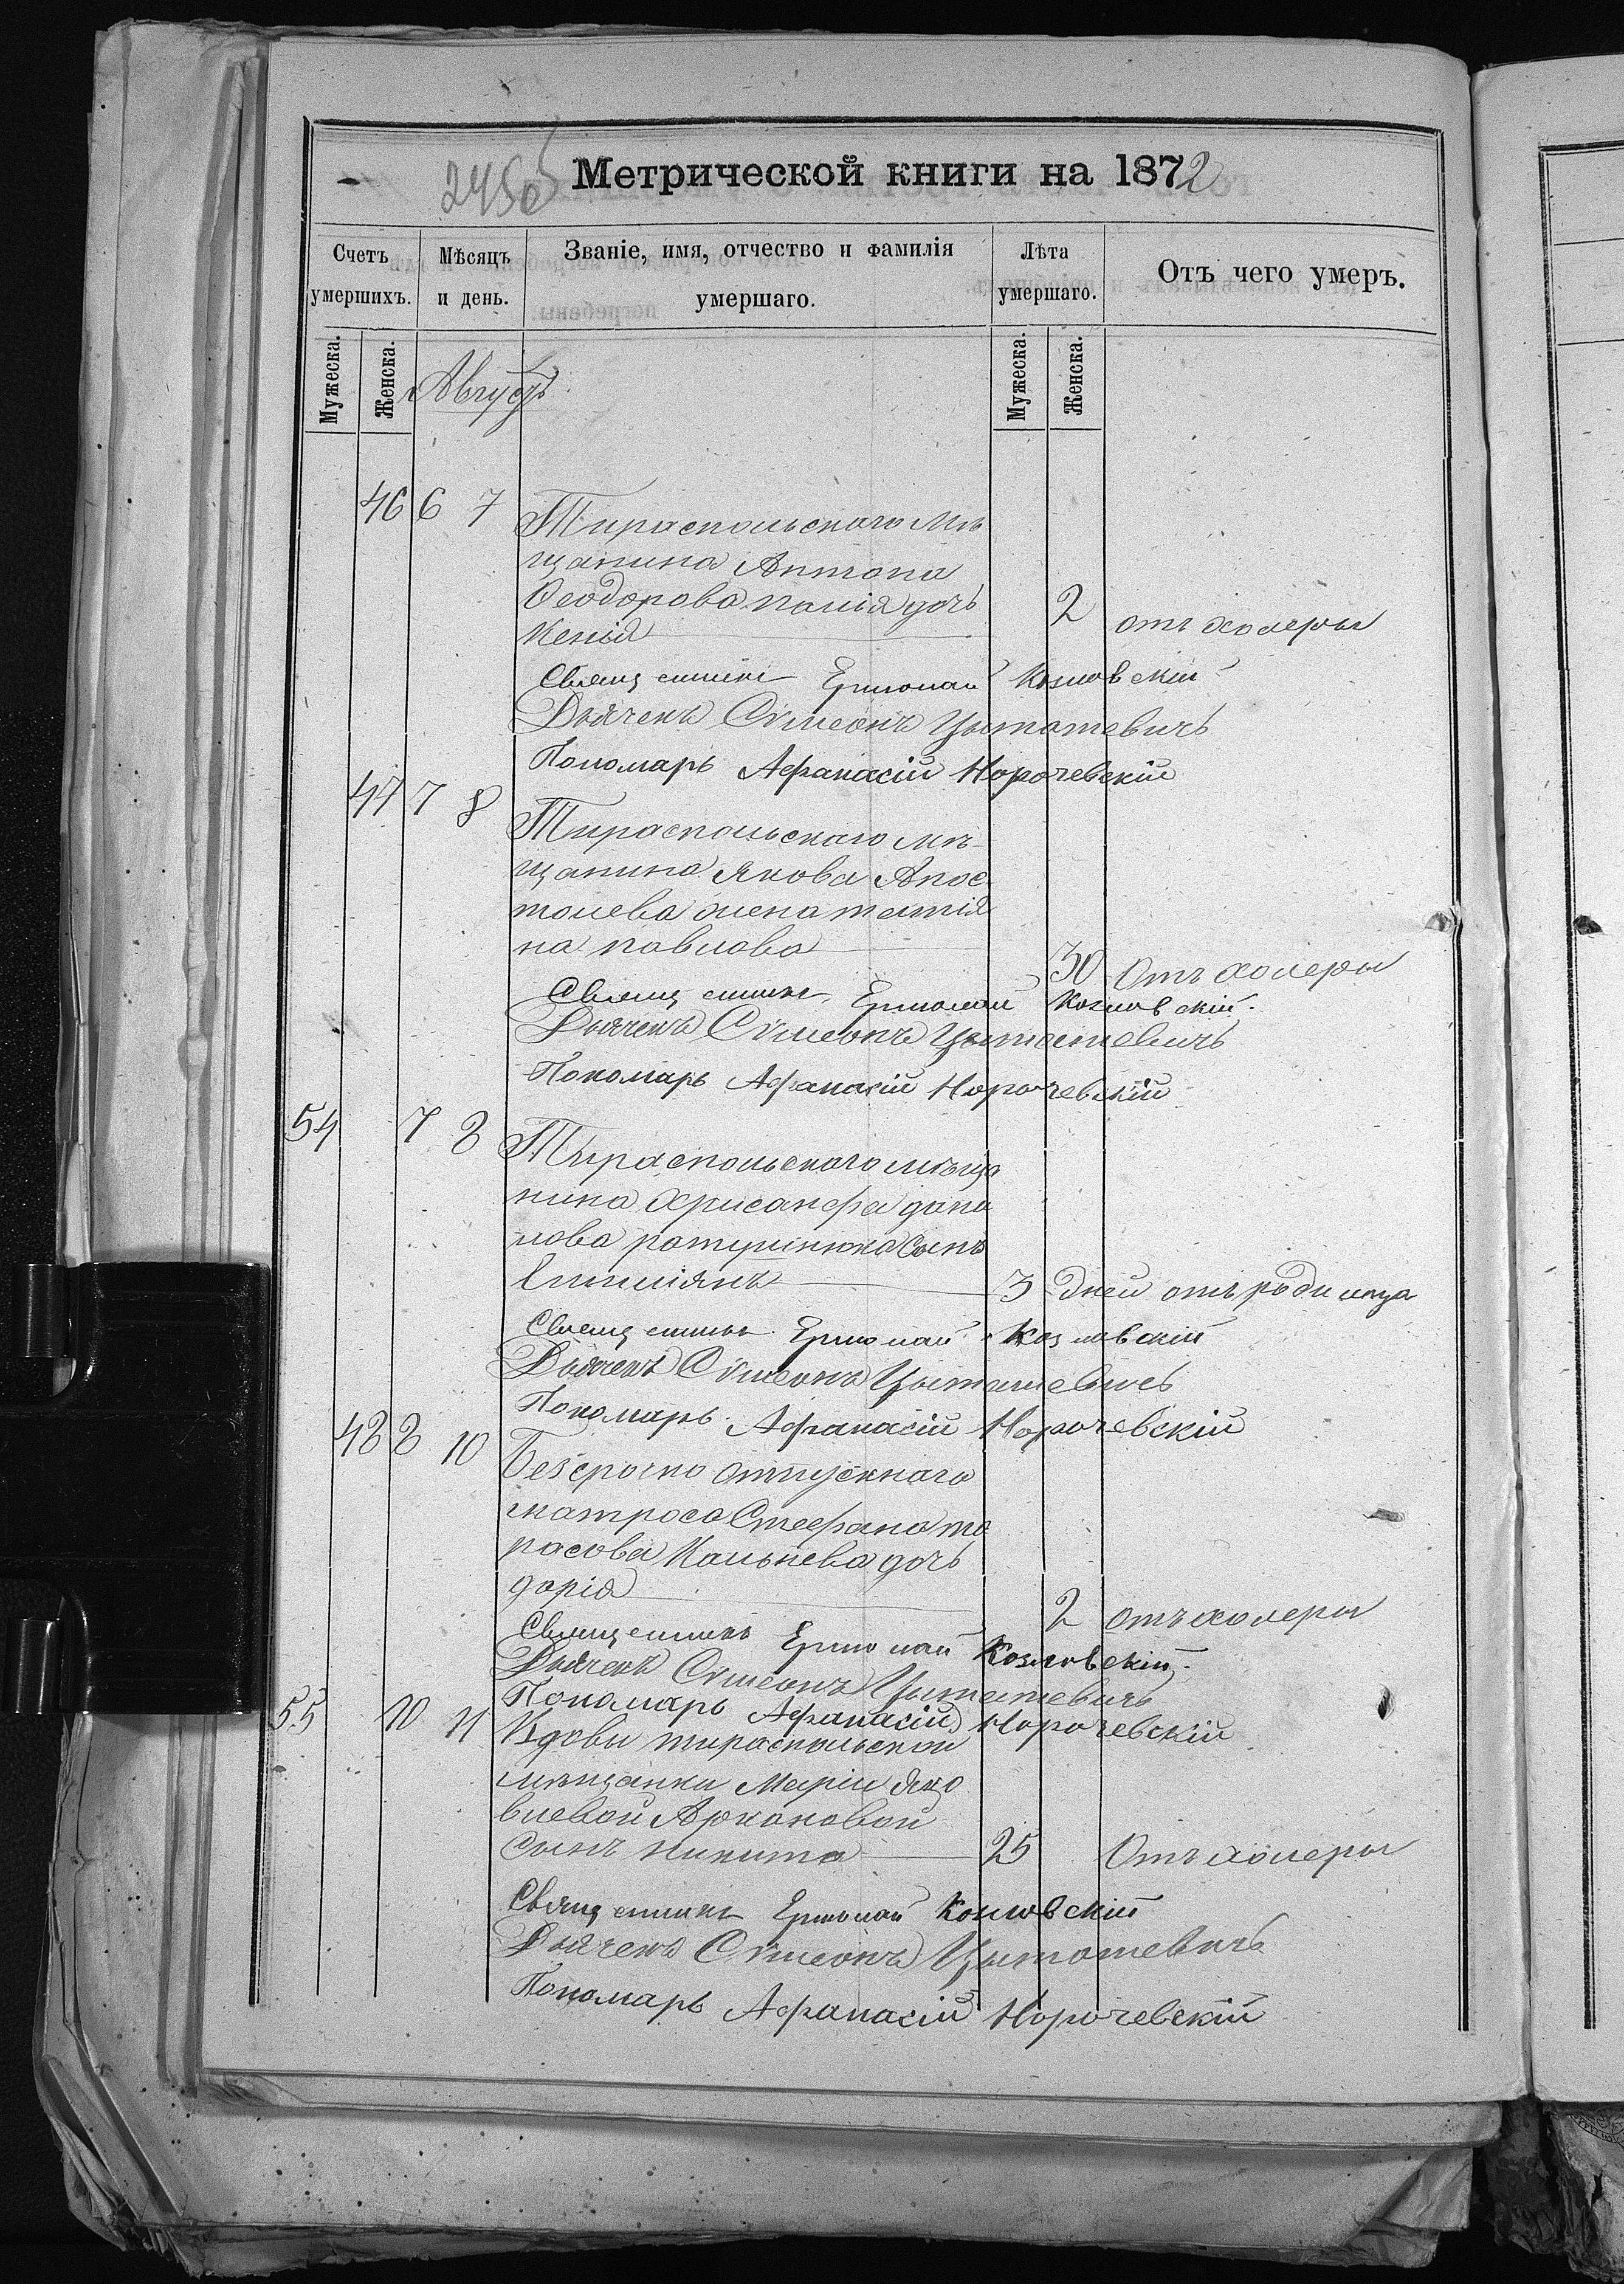 2450
Метрической книги на 1872
Счетъ умершихъ.
Мѣсяцъ и день.
Званіе, имя, отчество и фамилія умершаго.
Лѣта умершаго.
Отъ чего умеръ.
Мужеска.
Женска.
Августъ
Мужеска.
Женска.
46 6 7 Тираспольскаго мѣ
щанина Антона
Ѳеодорова дочь
Ксенія 2 отъ холеры
Священникъ Ермолай Козловскій
Дьячекъ Сѵмеонъ Цытатевичъ
Пономарь Афанасій Норочевскій
47 7 8 Тираспольскаго мѣ-
щанина Якова Апос
толева жена татія
на павлова 30 Отъ холеры
Священникъ Ермолай Козловскій.
Дьячекъ Сѵмеонъ Цытатевичъ
Пономарь Афанасій Норочевскій
54 7 8 Тираспольскаго мѣща
нина Хрисанфа дани
лова сынъ
Емиліянъ 3 дней отъ родимца
Священникъ Ермолай Козловскій
Дьячекъ Сѵмеонъ Цытатевичъ
Пономарь Афанасій Норочевскій
48 8 10 Безсрочно отпускнаго
матроса Стефана та
расова Кальнева дочь
дарія 2 отъ холеры
Священникъ Ермолай Козловскій.
Дьячекъ Сѵмеонъ Цытатевичъ
Пономарь Афанасій Норочевскій
55 10 11 Вдовы тираспольской
мѣщанки Маріи Яко
влевой
сынъ никита 25 Отъ холеры
Священникъ Ермолай Козловскій
Дьячекъ Сѵмеонъ Цытатевичъ
Пономарь Афанасій Норочевскій